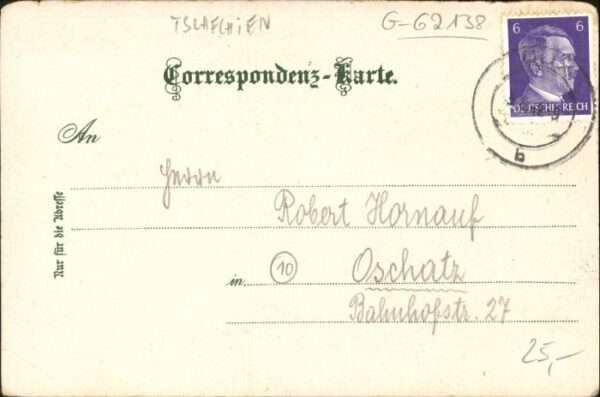 TSCHECHIEN
G-62138
6 6
DEUTSCHES REICH
Correspondenz-Karte.
An
Nur für die Adresse
Herrn
Robert Hornauf
in 10 Oschatz
Bahnhofstr. 27
b
25,-